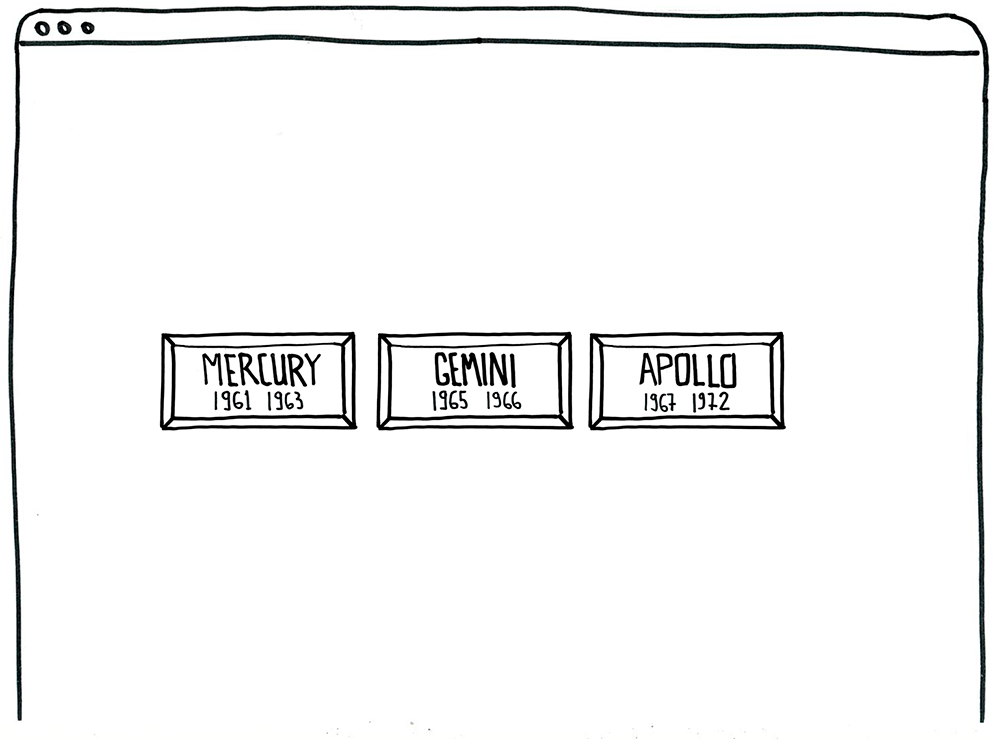 MERCURY
1961 1963
GEMINI
1965 1966
APOLLO
1967 1972